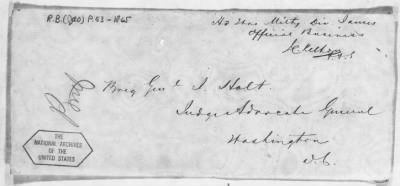 R.B. (JAO) P. 53-1865
Hd Qrs Milty Div James
Official Business
Brig Genl J. Holt.
Judge Advocate General
Washington
D.C.
THE
NATIONAL ARCHIVES
OF THE
UNITED STATES